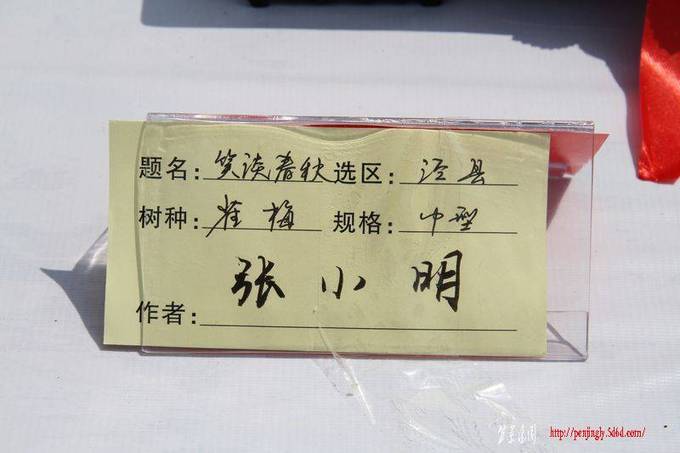 题名：笑读春秋 选区：泾县
树种：雀梅 规格：中型
作者：张小明
http://penjingly.5d6d.com/